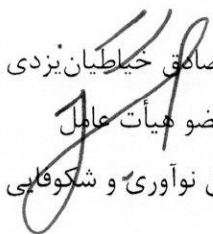 صادق خیاطیان‌یزدی
عضو هیأت عامل
نوآوری و شکوفایی